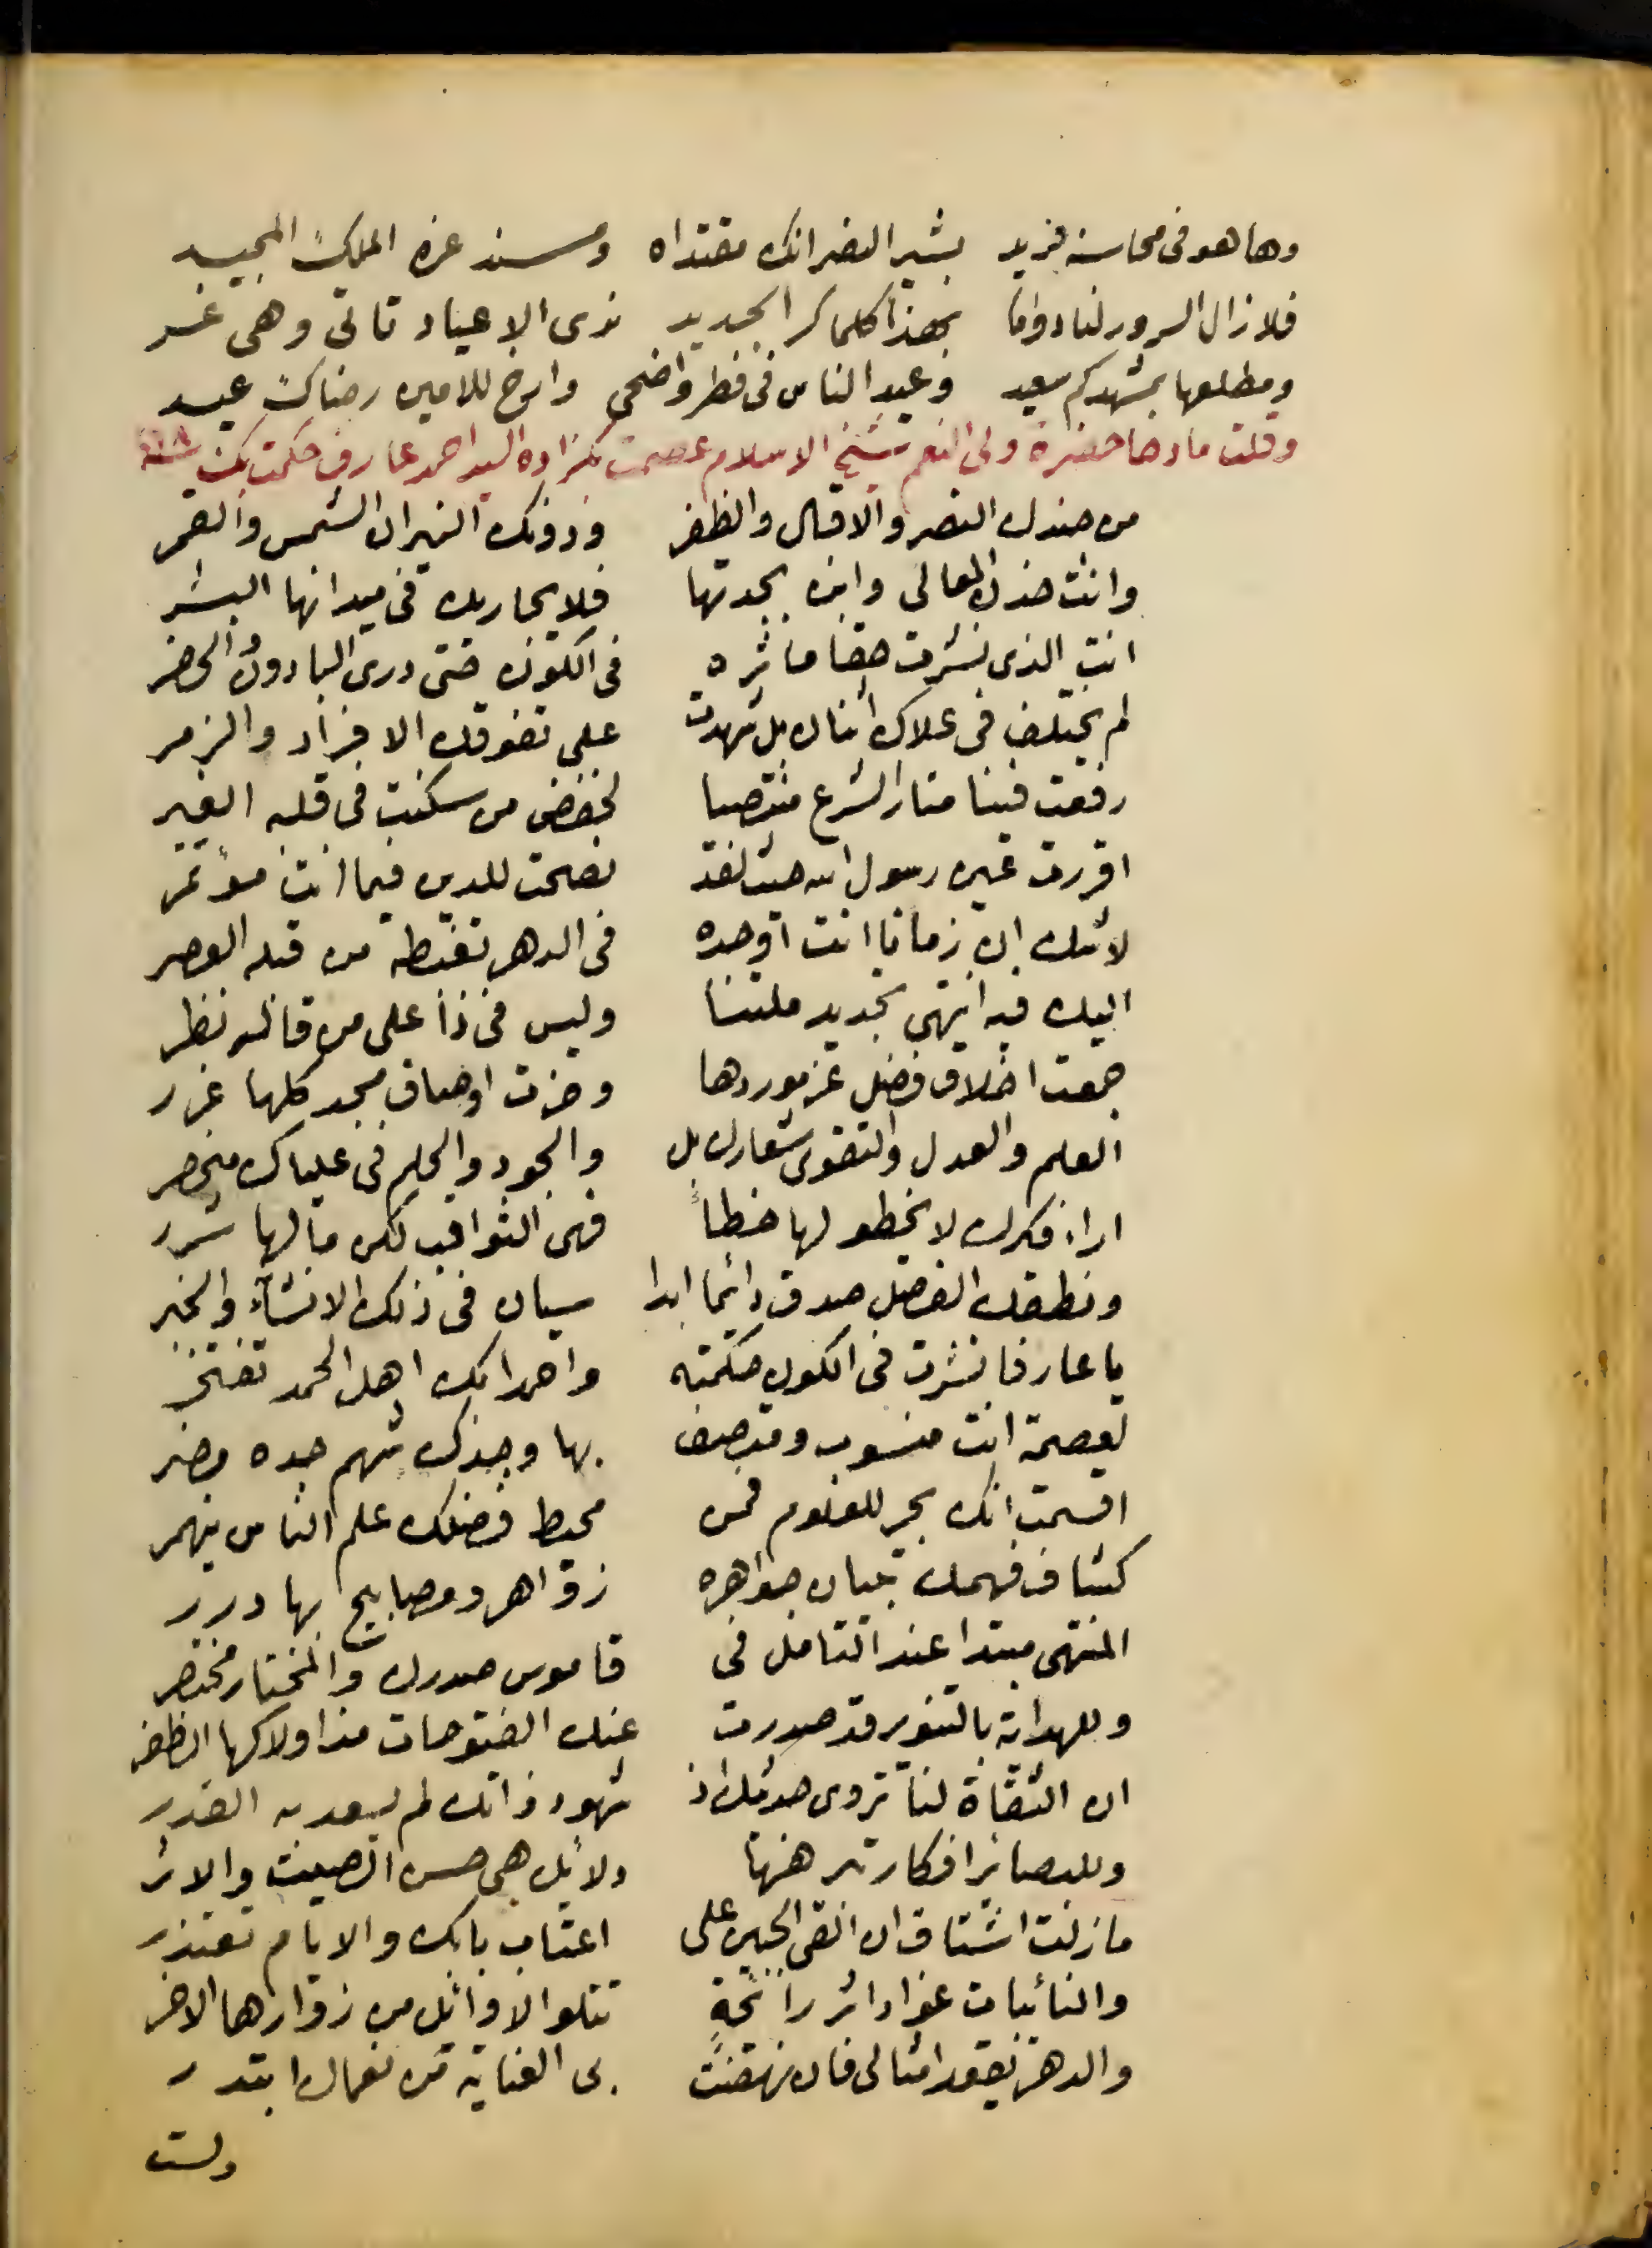 وها هو فى محاسنه فريد بشير النصر انك مقتداه ومسند عزه الملك المجيد
فلا زال السرور لنا دواما بهذا كلما كر الجديد نرى الاعياد تاتى وهى غر
ومطلعها بمشهدكم سعيد وعيد الناس فى فطر واضحى وارخ للامير رضاك عيد
وقلت مادحا حضرة ولى النعم شيخ الاسلام عصمت بكزاده السيد احمد عارف حكمت بك
من جندك النصر والاقبال والظفر ودونك النيران الشمس والقمر
وانت خدن المعالى وابن بجدتها فلا يجاريك فى ميدانها البشر
انت الذى نشرت حقا ماثره فى الكون حتى درى البادون والحضر
لم يختلف فى علاك اثنان بل شهدت على تفوقك الافراد والزمر
رفعت فينا منار الشرع منتصبا لخفض من سكنت فى قلبه الغير
اقررت عين رسول الله حيث لقد نصحت للدين فيما انت مؤتمر
لا شك ان زمانا انت اوحده فى الدهر تغبطه من قبله العصر
اليك فيه انتهى تجديد ملتنا وليس فى ذا على من قاله نظر
جمعت اخلاق فضل عز موردها وحزت اوصاف مجد كلها غرر
العلم والعدل والتقوى شعارك بل والجود والحلم فى علياك منحصر
اراء فكرك لا يخطو لها خطأ فهى الثواقب لكن ما لها شرر
ونطقك الفصل صدق دائما ابدا سيان فى ذلك الانشآء والخبر
يا عارفا نشرت فى الكون حكمته واحمدا بك اهل الحمد تفتخر
لعصمة انت منسوب ومتصف بها وجدك شهم جده مضر
اقسمت انك بحر للعلوم فمن محيط فضلك علم الناس ينهمر
كشاف فهمك تبيان جواهره زواهر ومصابيح بها درر
المنتهى مبتدا عند التامل فى قاموس صدرك والمختار مختصر
وللهداية بالتنوير قد صدرت عنك الفتوحات مذ اولاكها الظفر
ان الثقاة لنا تروى حديثك اذ شهود ذاتك لم يسعد به القدر
وللبصائر افكار تبرهنها دلائل هى حسن الصيت والاثر
ما زلت اشتاق ان القى الجبين على اعتاب بابك والايام تعتذر
والنائبات غوادٍ اثر رائحةٍ تتلو الاوائل من زوارها الاخر
والدهر يقعد امثالى فان نهضت بى العناية من نعماك ابتدر
ولست